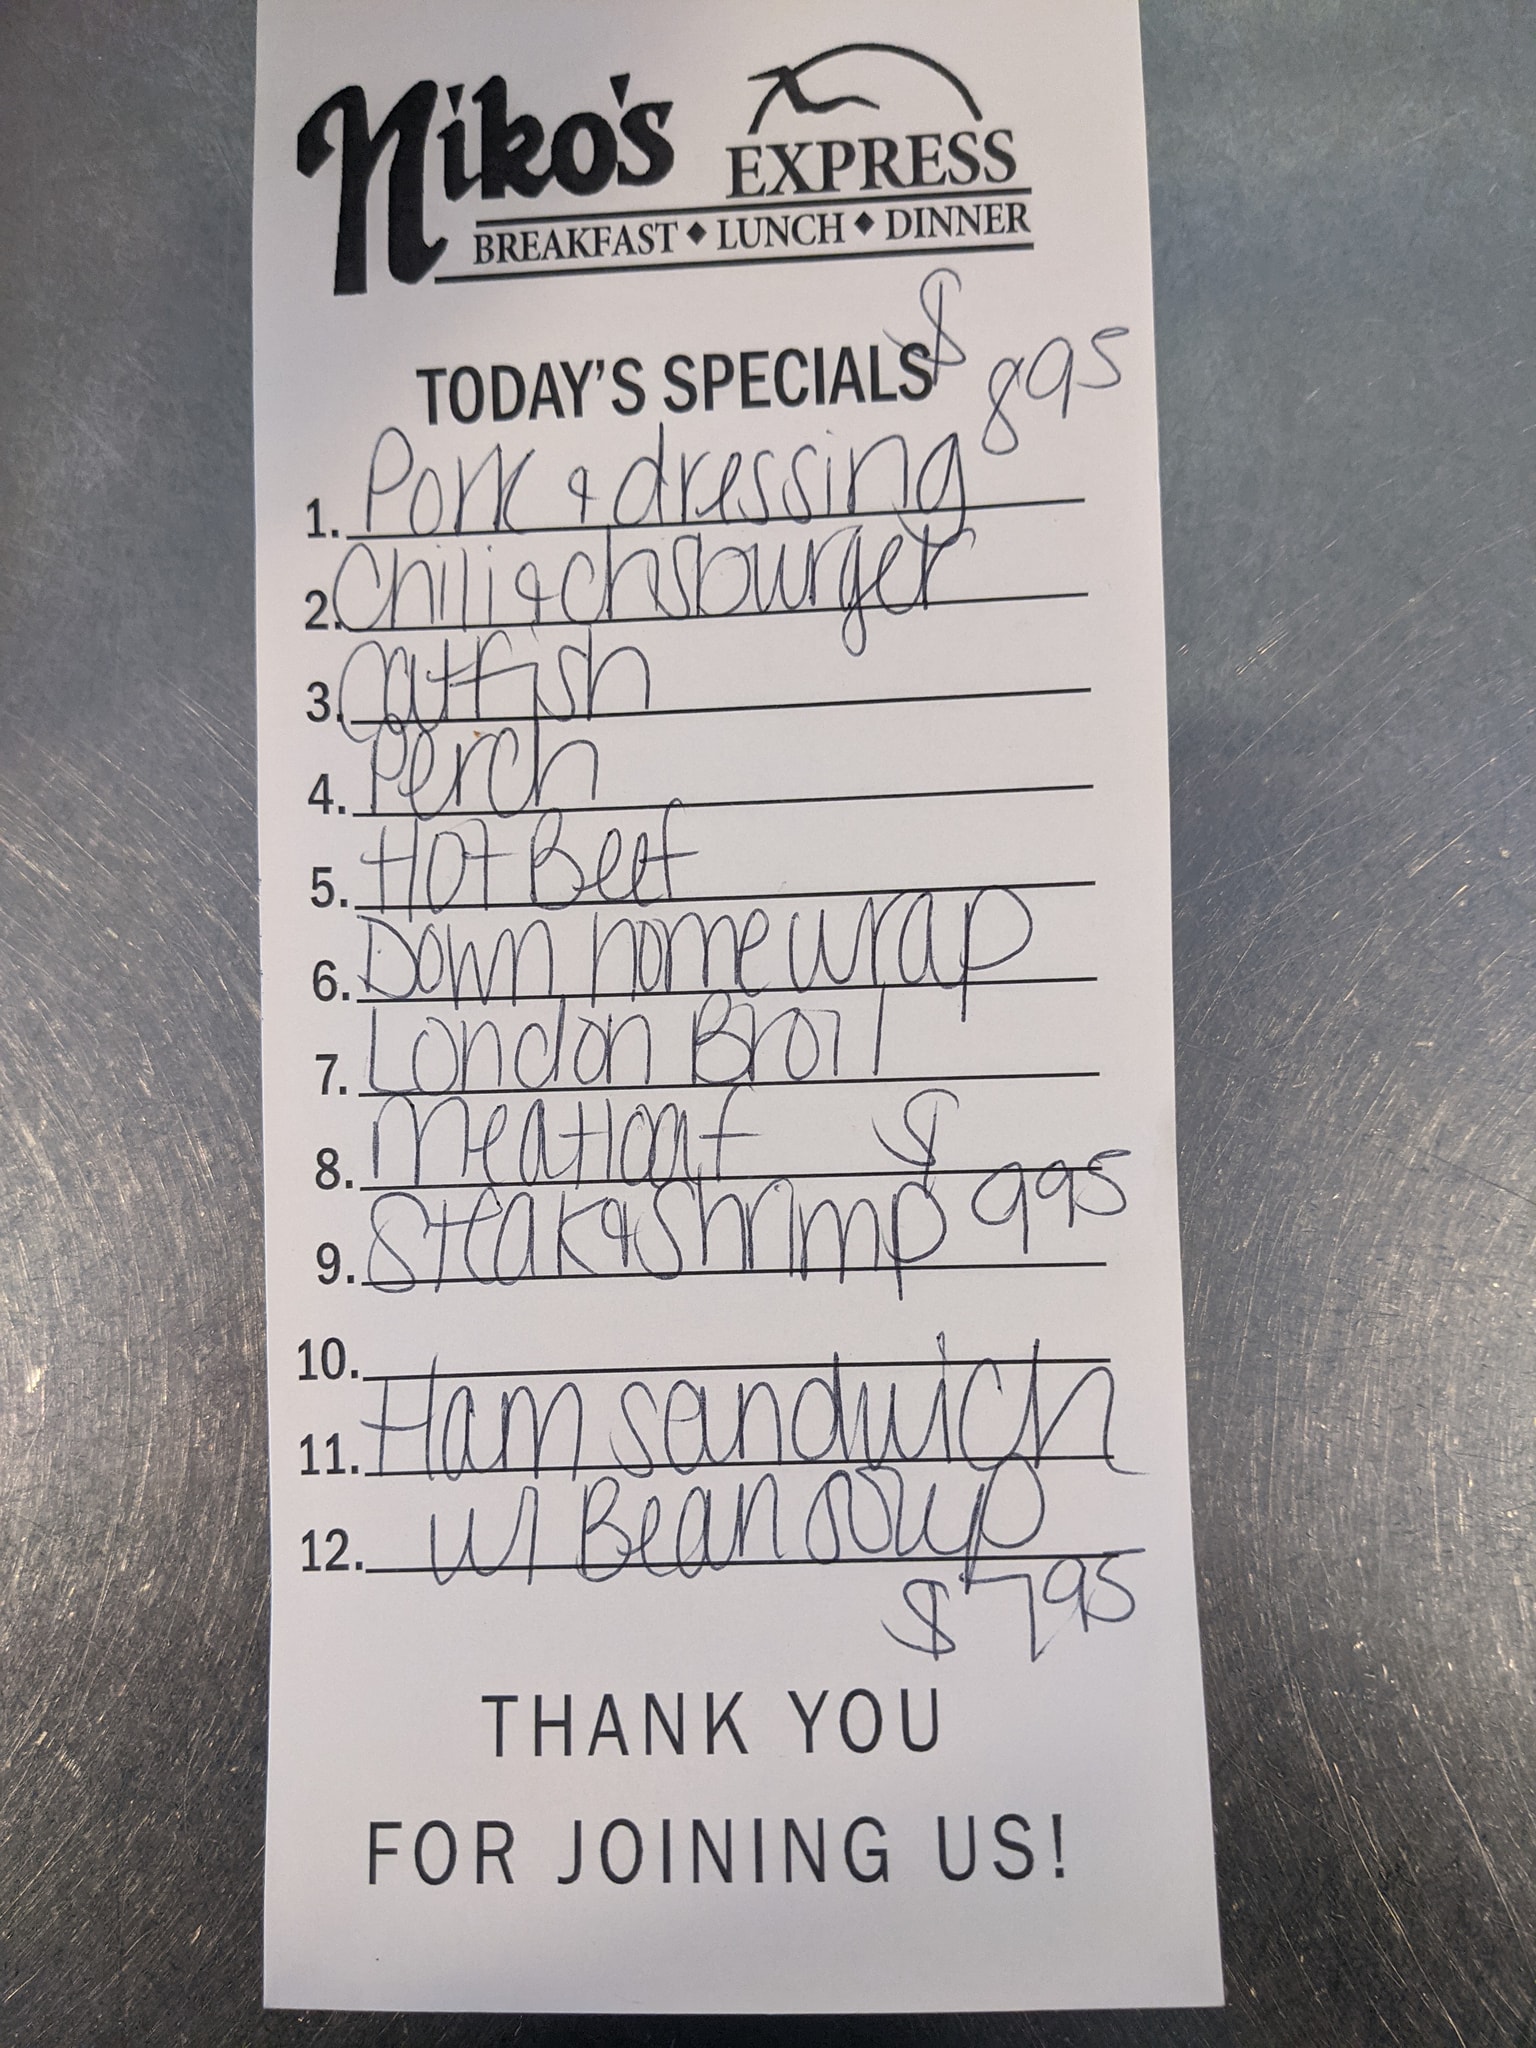 Niko's EXPRESS
BREAKFAST ◆ LUNCH ◆ DINNER
TODAY'S SPECIALS $ 895
1. Pork & dressing
2. Chili & chsburger
3. Catfish
4. Perch
5. Hot Beef
6. Down home wrap
7. London Broil
8. Meatloaf $
9. Steak & Shrimp 995
10.
11. Ham sandwich
12. w/ Bean soup
$ 795
THANK YOU
FOR JOINING US!